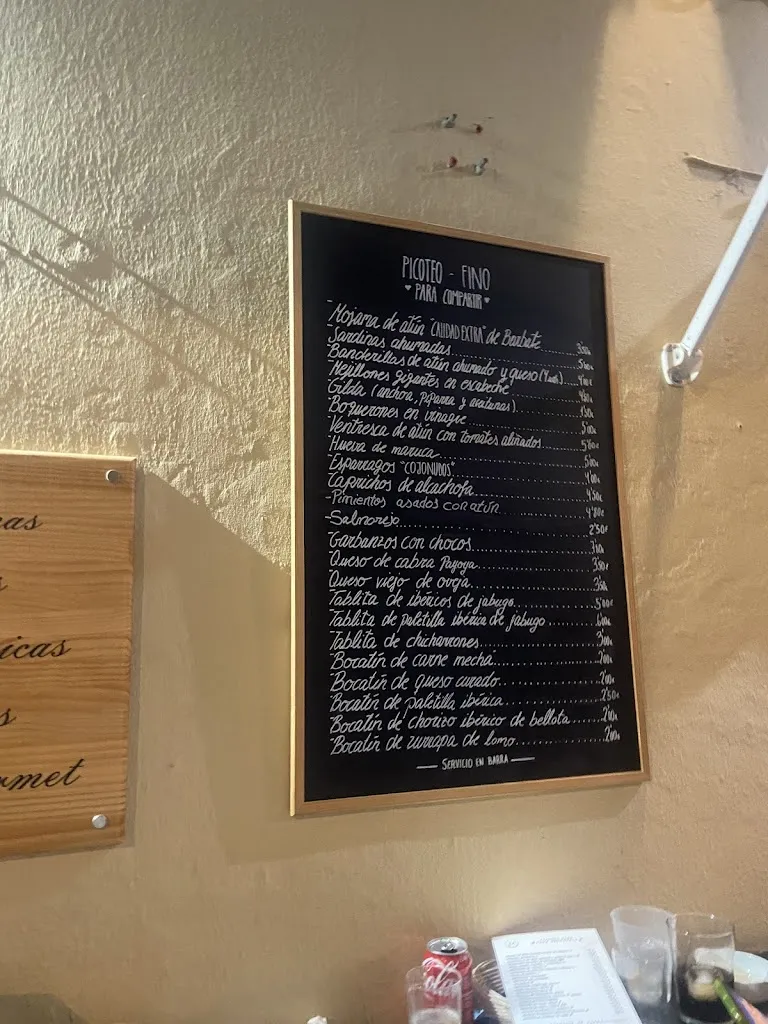 PICOTEO - FINO
♥ PARA COMPARTIR ♥
-Mojama de atún "CALIDAD EXTRA" de Barbate 3'50€
-Sardinas ahumadas
-Banderillas de atún ahumado y queso
-Mejillones gigantes en escabeche
-Gilda (anchoa, piparra y aceitunas)
-Boquerones en vinagre
-Ventresca de atún con tomates aliñados
-Hueva de maruca
-Esparragos "COJONUDOS"
-Caprichos de alcachofa 4'50€
-Pimientos asados con atún
-Salmorejo 2'50€
-Garbanzos con chocos
-Queso de cabra Payoya
-Queso viejo de oveja
-Tablita de ibéricos de jabugo 5'00€
-Tablita de paletilla ibérica de jabugo
-Tablita de chicharrones 3'00€
-Bocatín de carne mechá 2'00€
-Bocatín de queso curado 2'00€
-Bocatín de paletilla ibérica 2'50€
-Bocatín de chorizo ibérico de bellota 2'00€
-Bocatín de zurrapa de lomo 2'00€
SERVICIO EN BARRA
as
s
icas
s
rmet